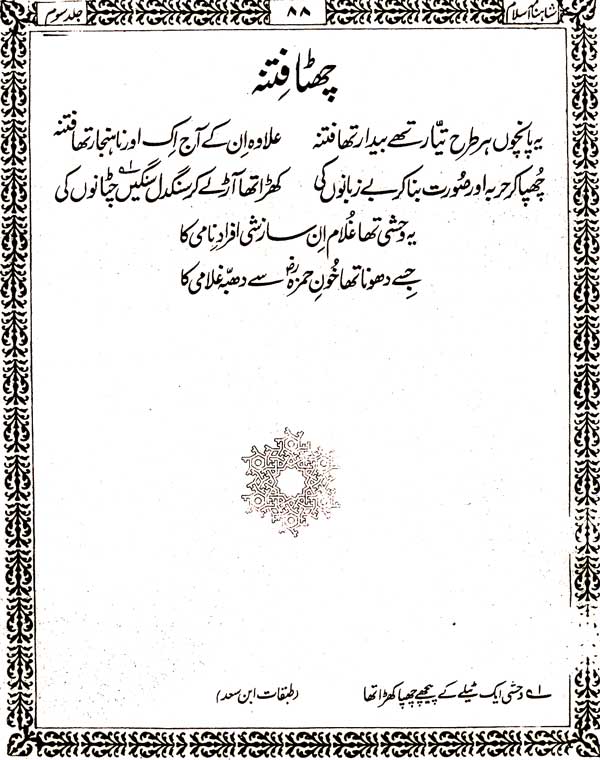 شاہنامۂ اسلام ۸۸ جلد سوم
چھٹا فِتنہ
یہ پانچوں ہر طرح تیّار تھے بیدار تھا فتنہ علاوہ اِن کے آج اِک اور ناہنجار تھا فتنہ
چُھپا کر حربہ اور صُورت بنا کر بے زبانوں کی کھڑا تھا آڑ لے کر سنگدل سنگیں ؎۱ چٹانوں کی
یہ وحشی تھا غُلام اِن سازشی افرادِ نامی کا
جسے دھونا تھا خُونِ حمزہ رضؓ سے دھبّہ غلامی کا
؎۱ وحشی ایک ٹیلے کے پیچھے چھپا کھڑا تھا (طبقات ابن سعد)